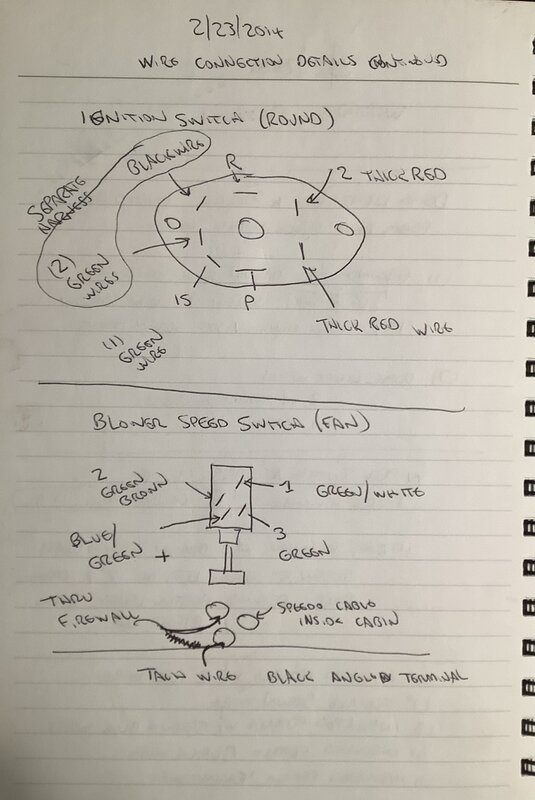 2/23/2014
WIRE CONNECTION DETAILS CONTINOUD
IGNITION SWITCH (ROUND)
BLACK WIRE
R
2 THICK RED
SEPARATE
HARNESS
(2)
GREEN
WIRES
15
P
THICK RED WIRE
(1)
GREEN
WIRE
BLOWER SPEED SWITCH (FAN)
2
GREEN
BROWN
1 GREEN/WHITE
BLUE/
GREEN +
3
GREEN
THRU
FIREWALL
SPEEDO CABLE
INSIDE CABIN
TACH WIRE BLACK ANGLED TERMINAL